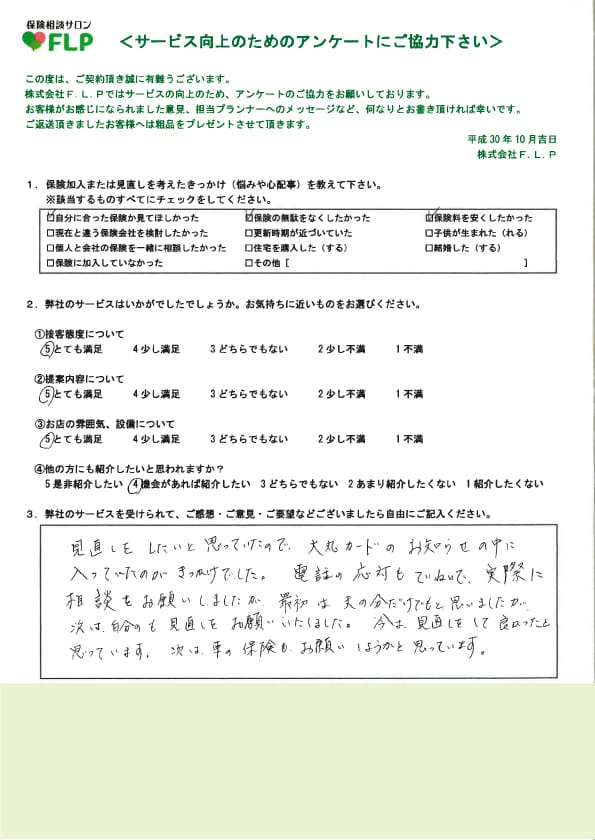 保険相談サロン
FLP
＜サービス向上のためのアンケートにご協力下さい＞
この度は、ご契約頂き誠に有難うございます。
株式会社F．L．Pではサービスの向上のため、アンケートのご協力をお願いしております。
お客様がお感じになられました意見、担当プランナーへのメッセージなど、何なりとお書き頂ければ幸いです。
ご返送頂きましたお客様へは粗品をプレゼントさせて頂きます。
平成30年10月吉日
株式会社F．L．P
1．保険加入または見直しを考えたきっかけ（悩みや心配事）を教えて下さい。
※該当するものすべてにチェックをしてください。
☑自分に合った保険か見てほしかった ☑保険の無駄をなくしたかった ☑保険料を安くしたかった
□現在と違う保険会社を検討したかった □更新時期が近づいていた □子供が生まれた（れる）
□個人と会社の保険を一緒に相談したかった □住宅を購入した（する） □結婚した（する）
□保険に加入していなかった □その他［ ］
2．弊社のサービスはいかがでしたでしょうか。お気持ちに近いものをお選びください。
①接客態度について
5とても満足 4少し満足 3どちらでもない 2少し不満 1不満
②提案内容について
5とても満足 4少し満足 3どちらでもない 2少し不満 1不満
③お店の雰囲気、設備について
5とても満足 4少し満足 3どちらでもない 2少し不満 1不満
④他の方にも紹介したいと思われますか？
5是非紹介したい 4機会があれば紹介したい 3どちらでもない 2あまり紹介したくない 1紹介したくない
3．弊社のサービスを受けられて、ご感想・ご意見・ご要望などございましたら自由にご記入ください。
見直しをしたいと思っていたので、大丸カードのお知らせの中に
入っていたのがきっかけでした。電話の応対もていねいで、実際に
相談をお願いしましたが、最初は夫の分だけでもと思いましたが、
次は、自分のも見直しをお願いいたしました。今は、見直しをして良かったと
思っています。次は、車の保険も、お願いしようかと思っています。